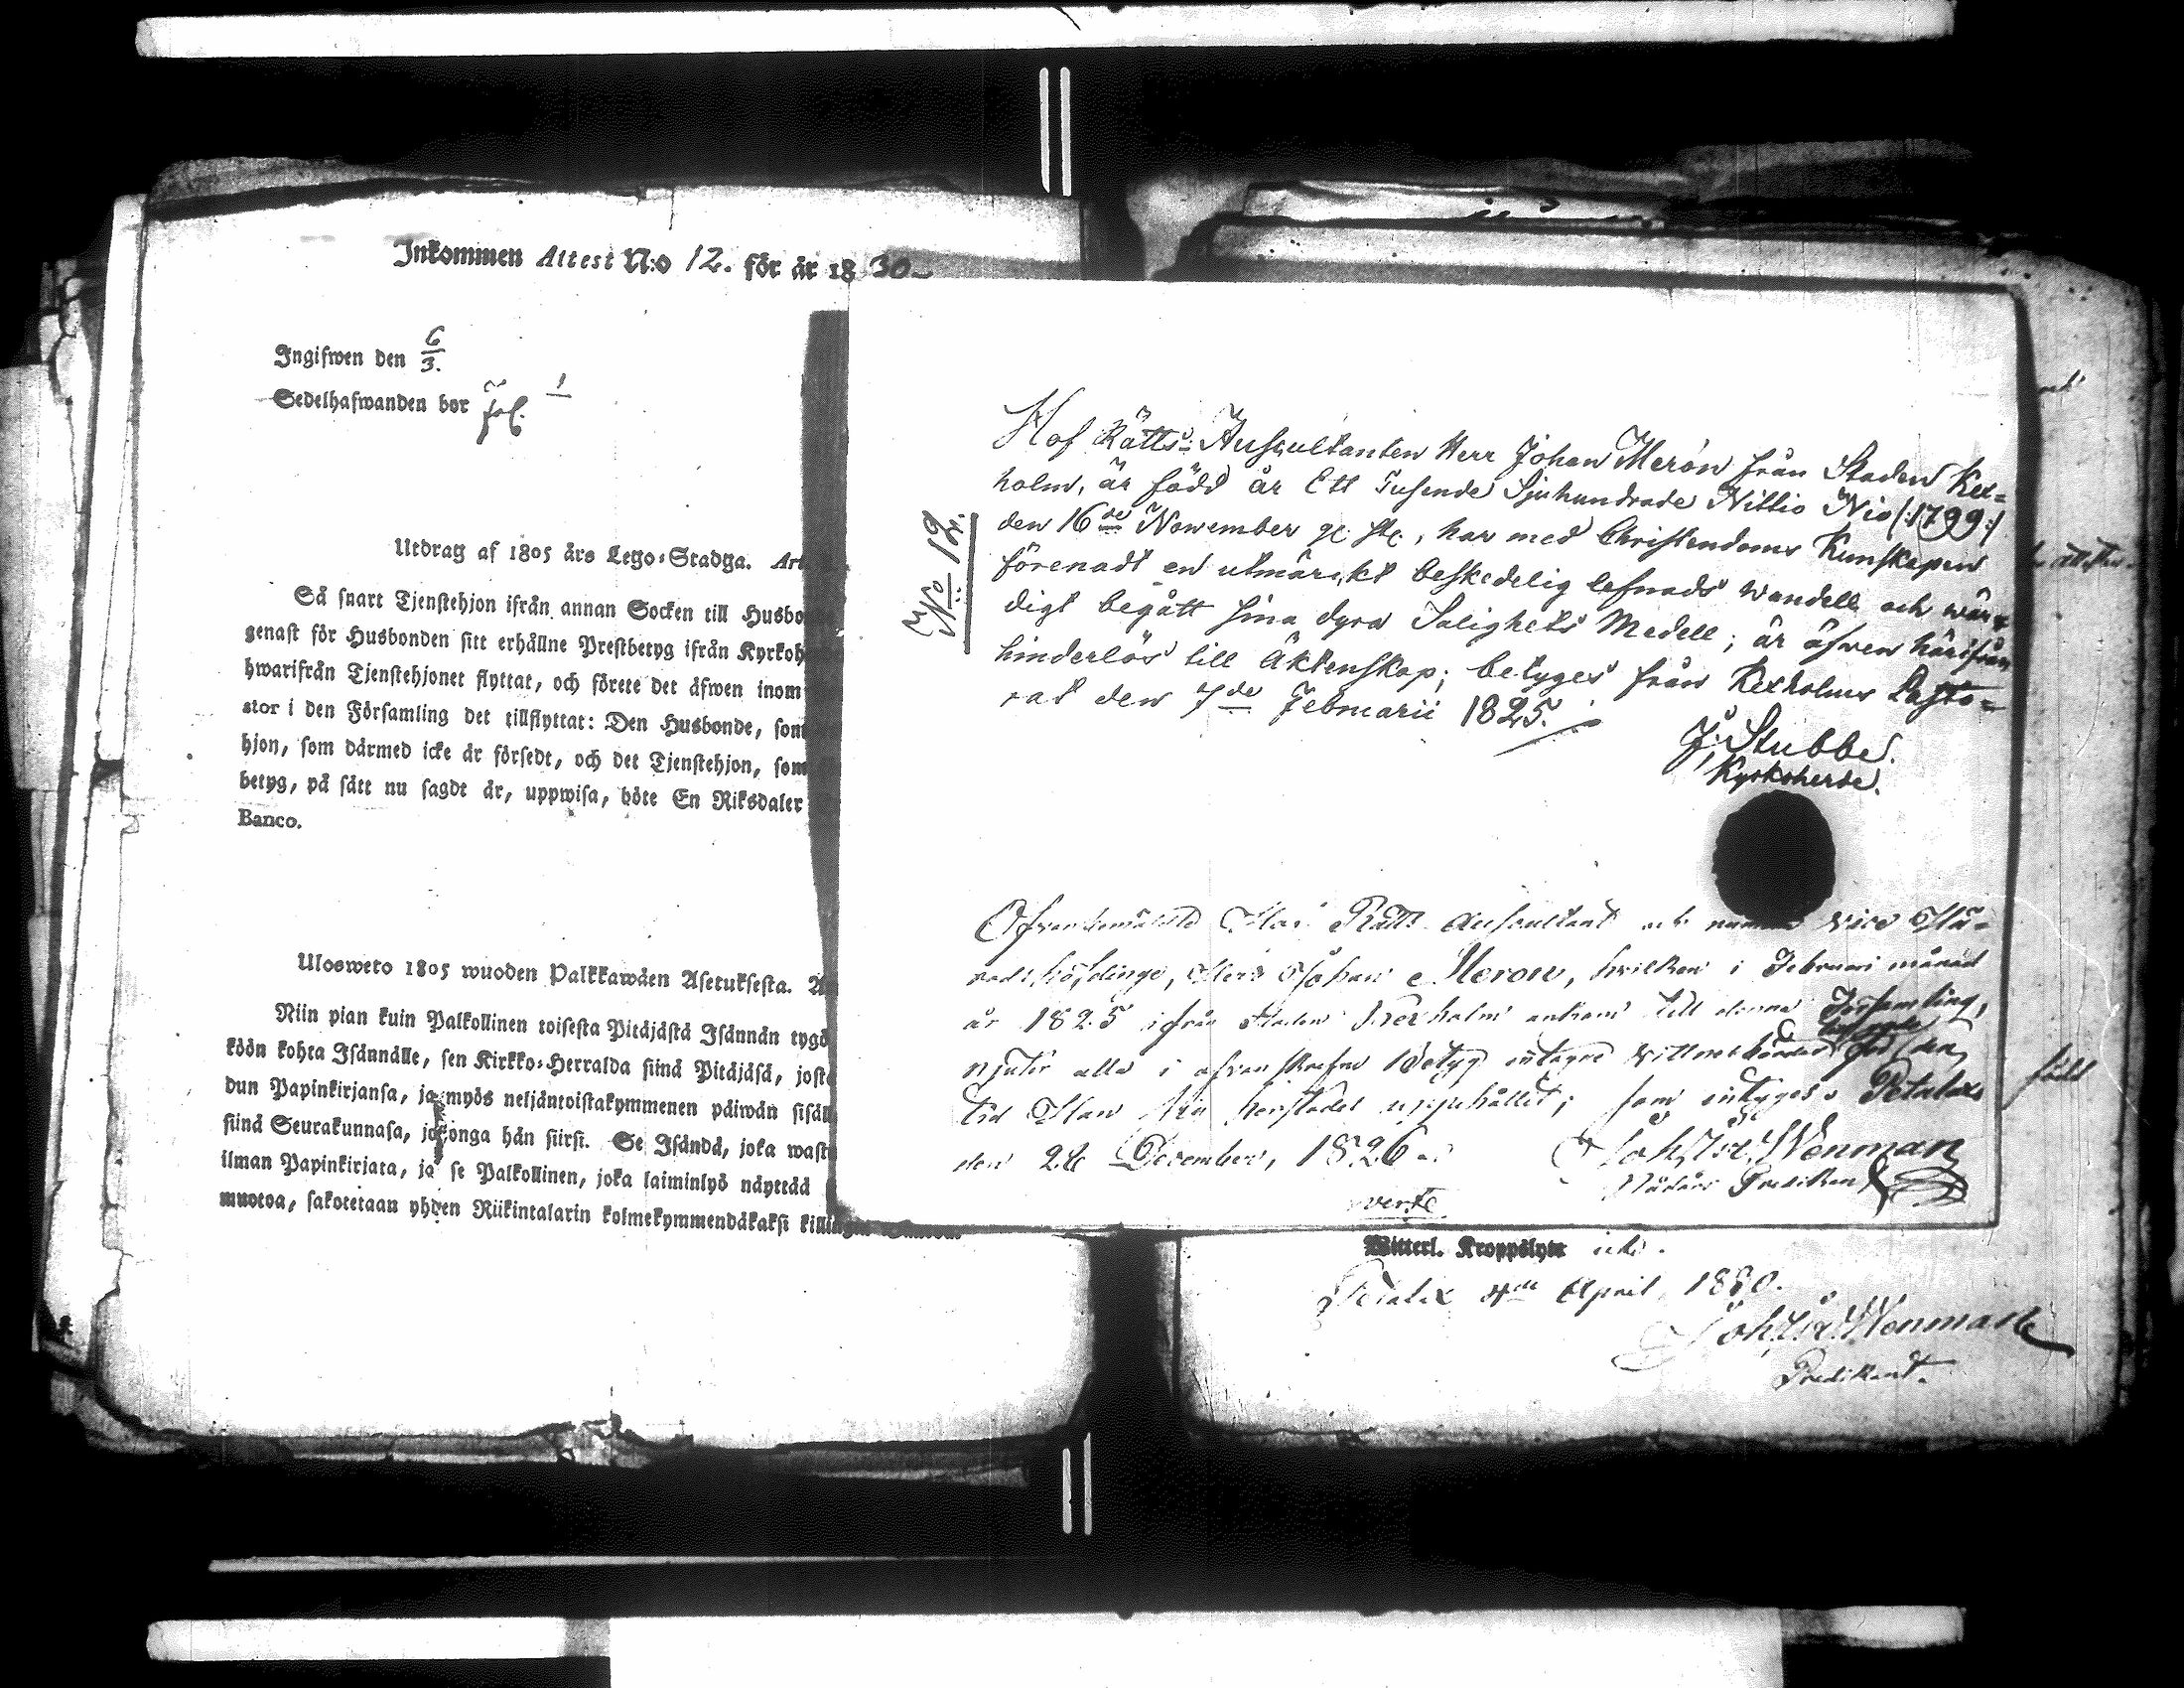 Inkommen Attest N:o 12. för år 1830
Ingifwen den 6/3.
Sedelhafwanden bor
Utdrag af 1805 års Lego-Stadga. Art
Så snart Tjenstehjon ifrån annan Socken till Husbo
genast för Husbonden sitt erhållne Prestbetyg ifrån Kyrkoh
hwarifrån Tjenstehjonet flyttat, och förete det äfwen inom
stor i den Församling det tillflyttat: Den Husbonde, som
hjon, som därmed icke är försedt, och det Tjenstehjon, som
betyg, på sätt nu sagdt är, uppwisa, böte En Riksdaler
Banco.
Ulosweto 1805 wuoden Palkkawäen Asetuksesta. A
Niin pian kuin Palkollinen toisesta Pitäjästä Isännän tygö
köön kohta Isännälle, sen Kirkko-Herralda siinä Pitäjäsä, josta
dun Papinkirjansa, ja myös neljäntoistakymmenen päiwän sisäll
siinä Seurakunnasa, johonga hän siirsi. Se Isändä, joka wast
ilman Papinkirjata, ja se Palkollinen, joka laiminlyö näyttää
muotoa, sakotetaan yhden Riikintalarin kolmekymmendäkaksi killingin
No 12.
Hof Rätts-Auscultanten Herr Johan Meron från Staden Kex=
holm, är född år Ett Tusende Sjuhundrade Nittio Nio (:1799:)
den 16de November g: st:, har med Christendoms Kunskapen
förenadt en utmärckt beskedelig lefnads wandell och wär=
digt begått sina dyra Salighets Medell; är äfven härifrån
hinderlös till Äktenskap; betyges från Kexholms Pasto=
rat den 7de Februarii 1825.
J. Stubbe.
Kyrkoherde.
Ofvanbemälde Hof Rätts Auscultant och numera vice Hä=
radshöfdinge, Herr Johan Meron, hvilken i Februari månad
år 1825 ifrån Staden Kexholm ankom till denna Församling,
njuter alla i ofvanskrefne Betyg intagne vittnesbörder för den
tid Han här härstädes uppehållit; som intygas. Petalax
den 26 December, 1826.
Joh. Wenman
Nådårs Predikant
verte
Witterl. Kroppslyte icke.
Petalax 4de April 1830.
Joh. Wenman
Predikant.